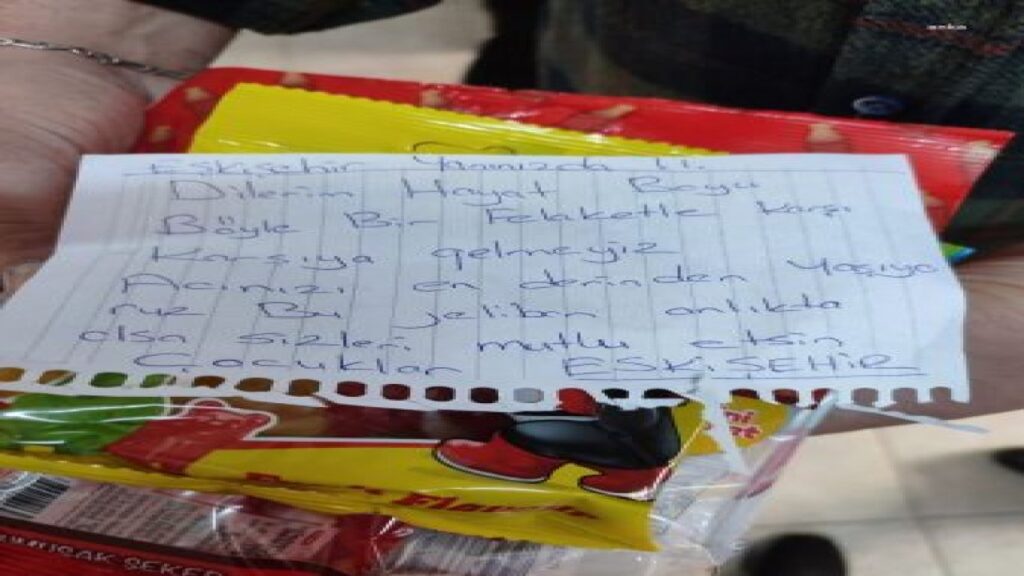 Eskişehir Yanınızda !!.
Dilerim Hayat Boyu
Böyle Bir Felaketle Karşı
Karşıya gelmeyiz
Acınızı en derinden Yaşıyo
ruz Bu jelibon anlıkta
olsa sizleri mutlu etsin
Çocuklar ESKİŞEHİR
YUMUŞAK ŞEKER